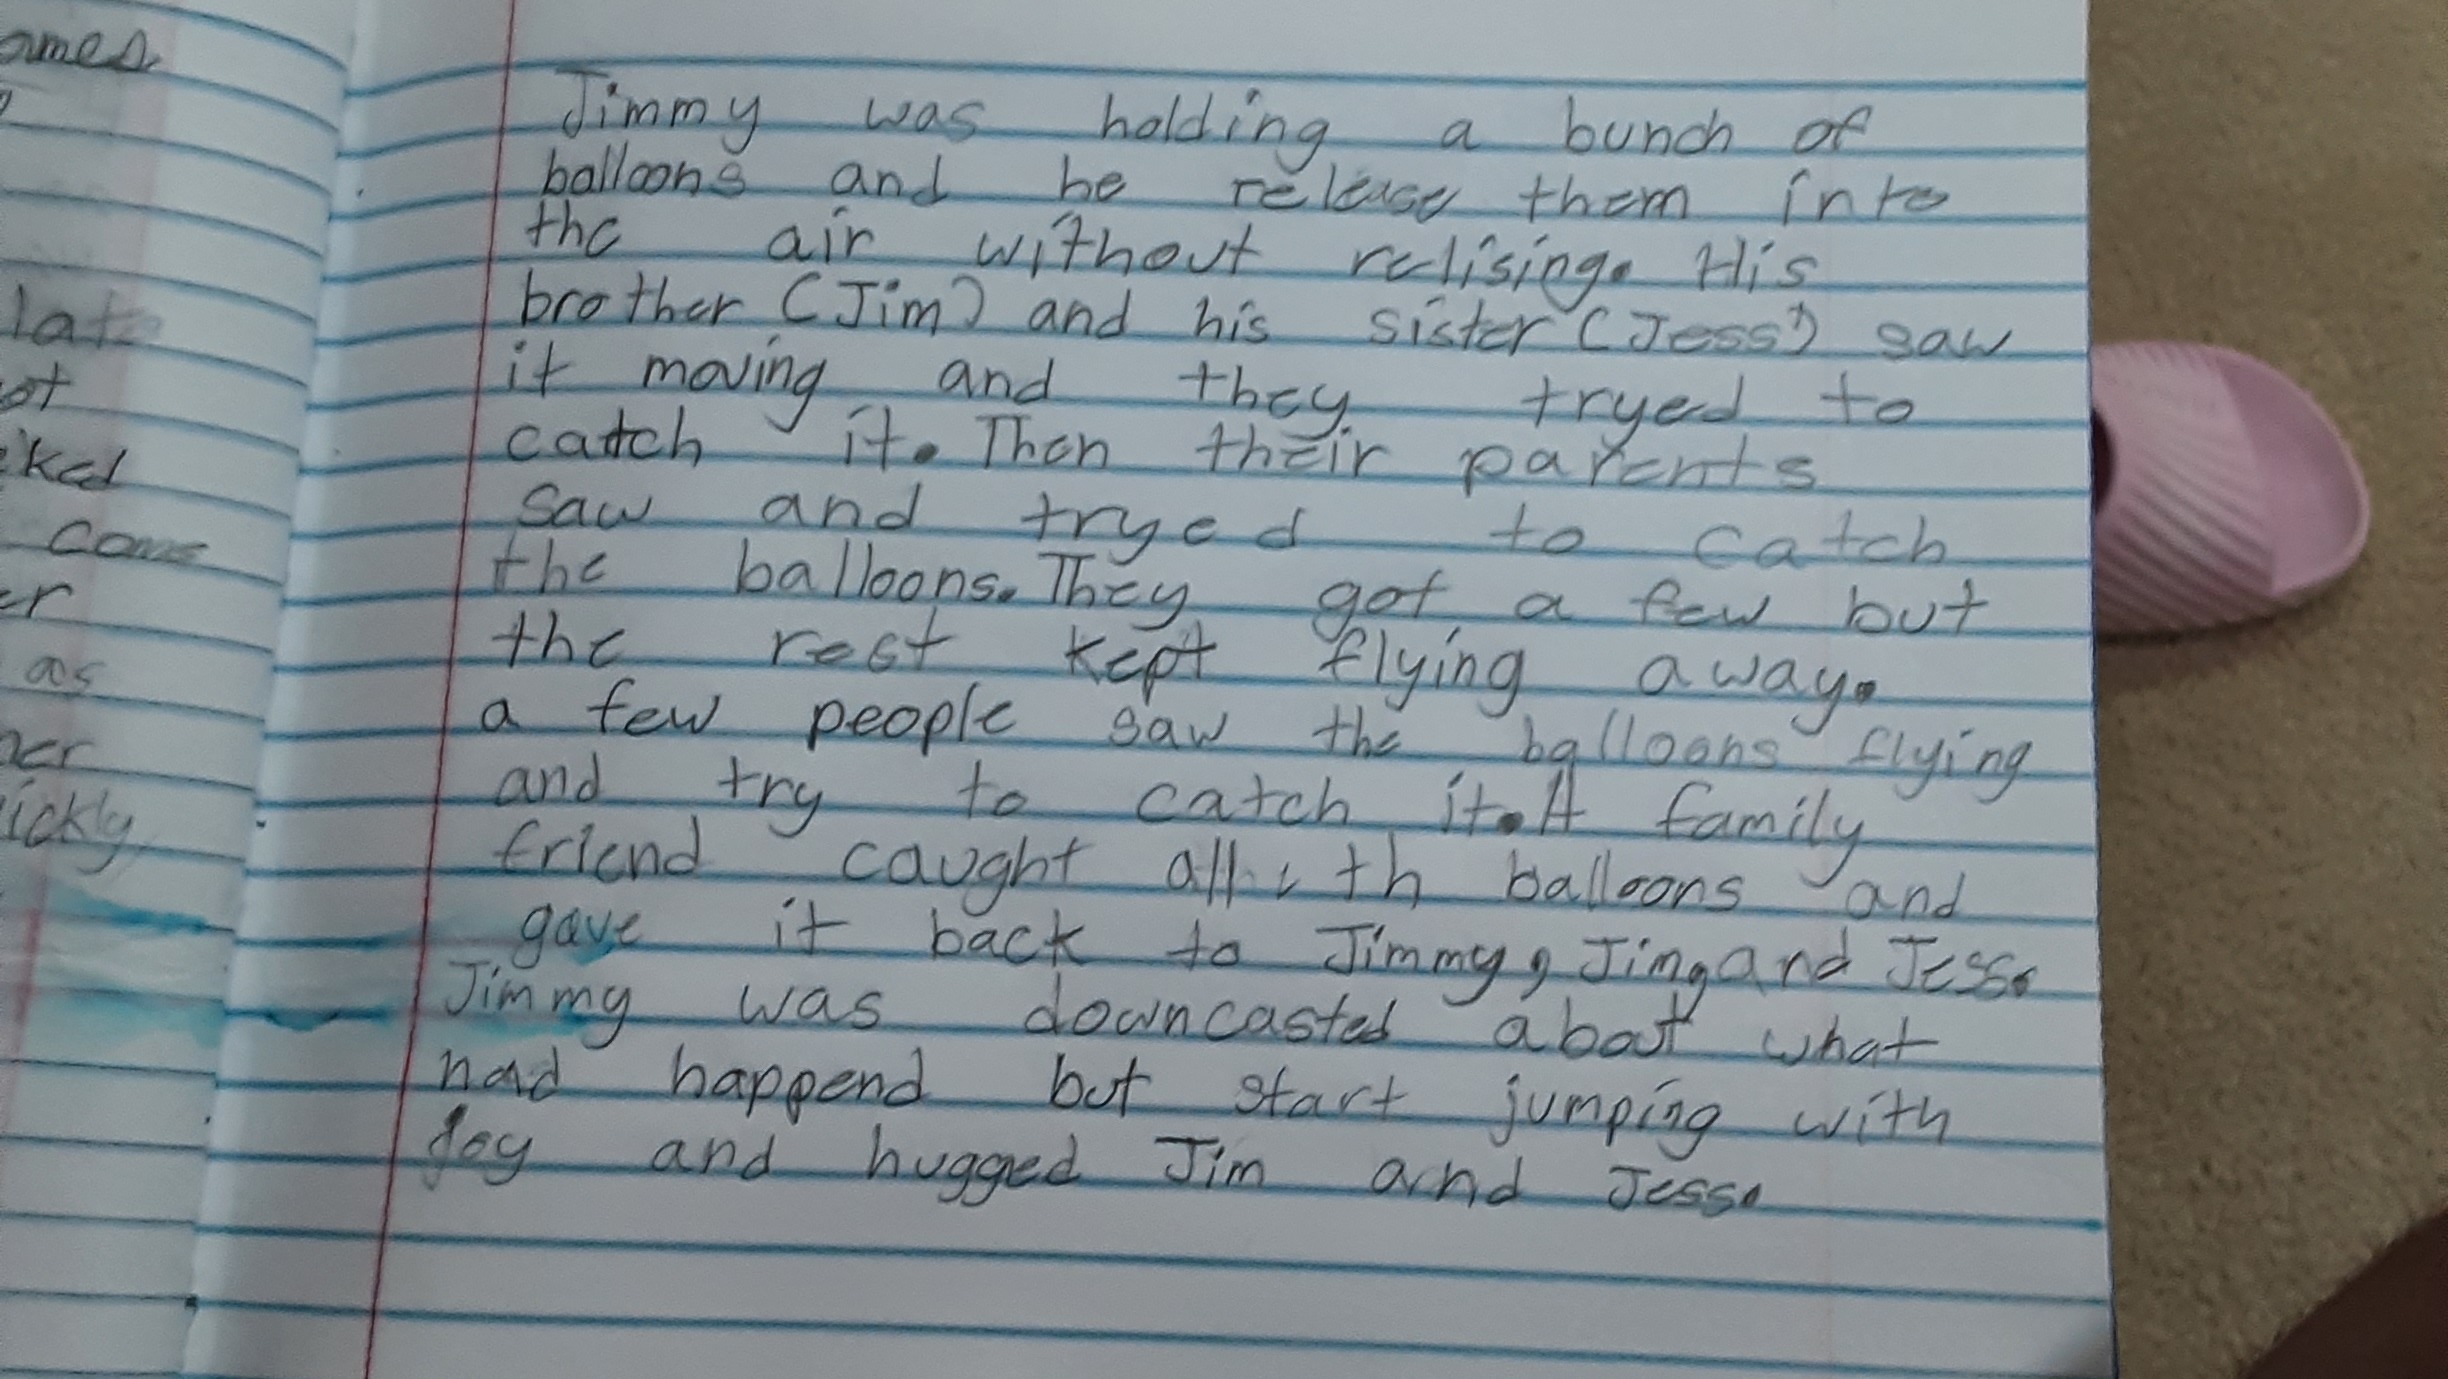 ames
late
ot
ked
come
er
as
her
ickly
Jimmy was holding a bunch of
balloons and he release them into
the air without relising. His
brother (Jim) and his sister (Jess) saw
it moving and they tryed to
catch it. Then their parents
saw and tryed to catch
the balloons. They got a few but
the rest kept flying away.
a few people saw the balloons flying
and try to catch it. A family
friend caught all th balloons and
gave it back to Jimmy, Jim, and Jess.
Jimmy was downcasted about what
had happend but start jumping with
joy and hugged Jim and Jess.